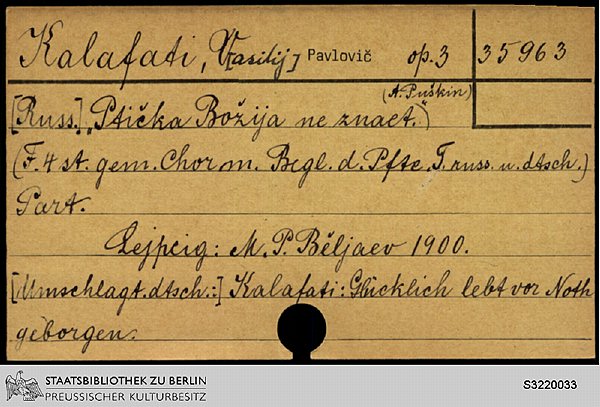 Kalafati, V[asilij] Pavlovič op. 3 35963
(A. Puškin)
[Russ.] „Ptička Božija ne znaet.“)
(F. 4 st. gem. Chor m. Begl. d. Pfte. T. russ. u. dtsch.)
Part.
Lejpcig: M. P. Běljaev 1900.
[Umschlagt. dtsch.:] Kalafati: Glücklich lebt vor Noth
geborgen.
STAATSBIBLIOTHEK ZU BERLIN
PREUSSISCHER KULTURBESITZ
S3220033